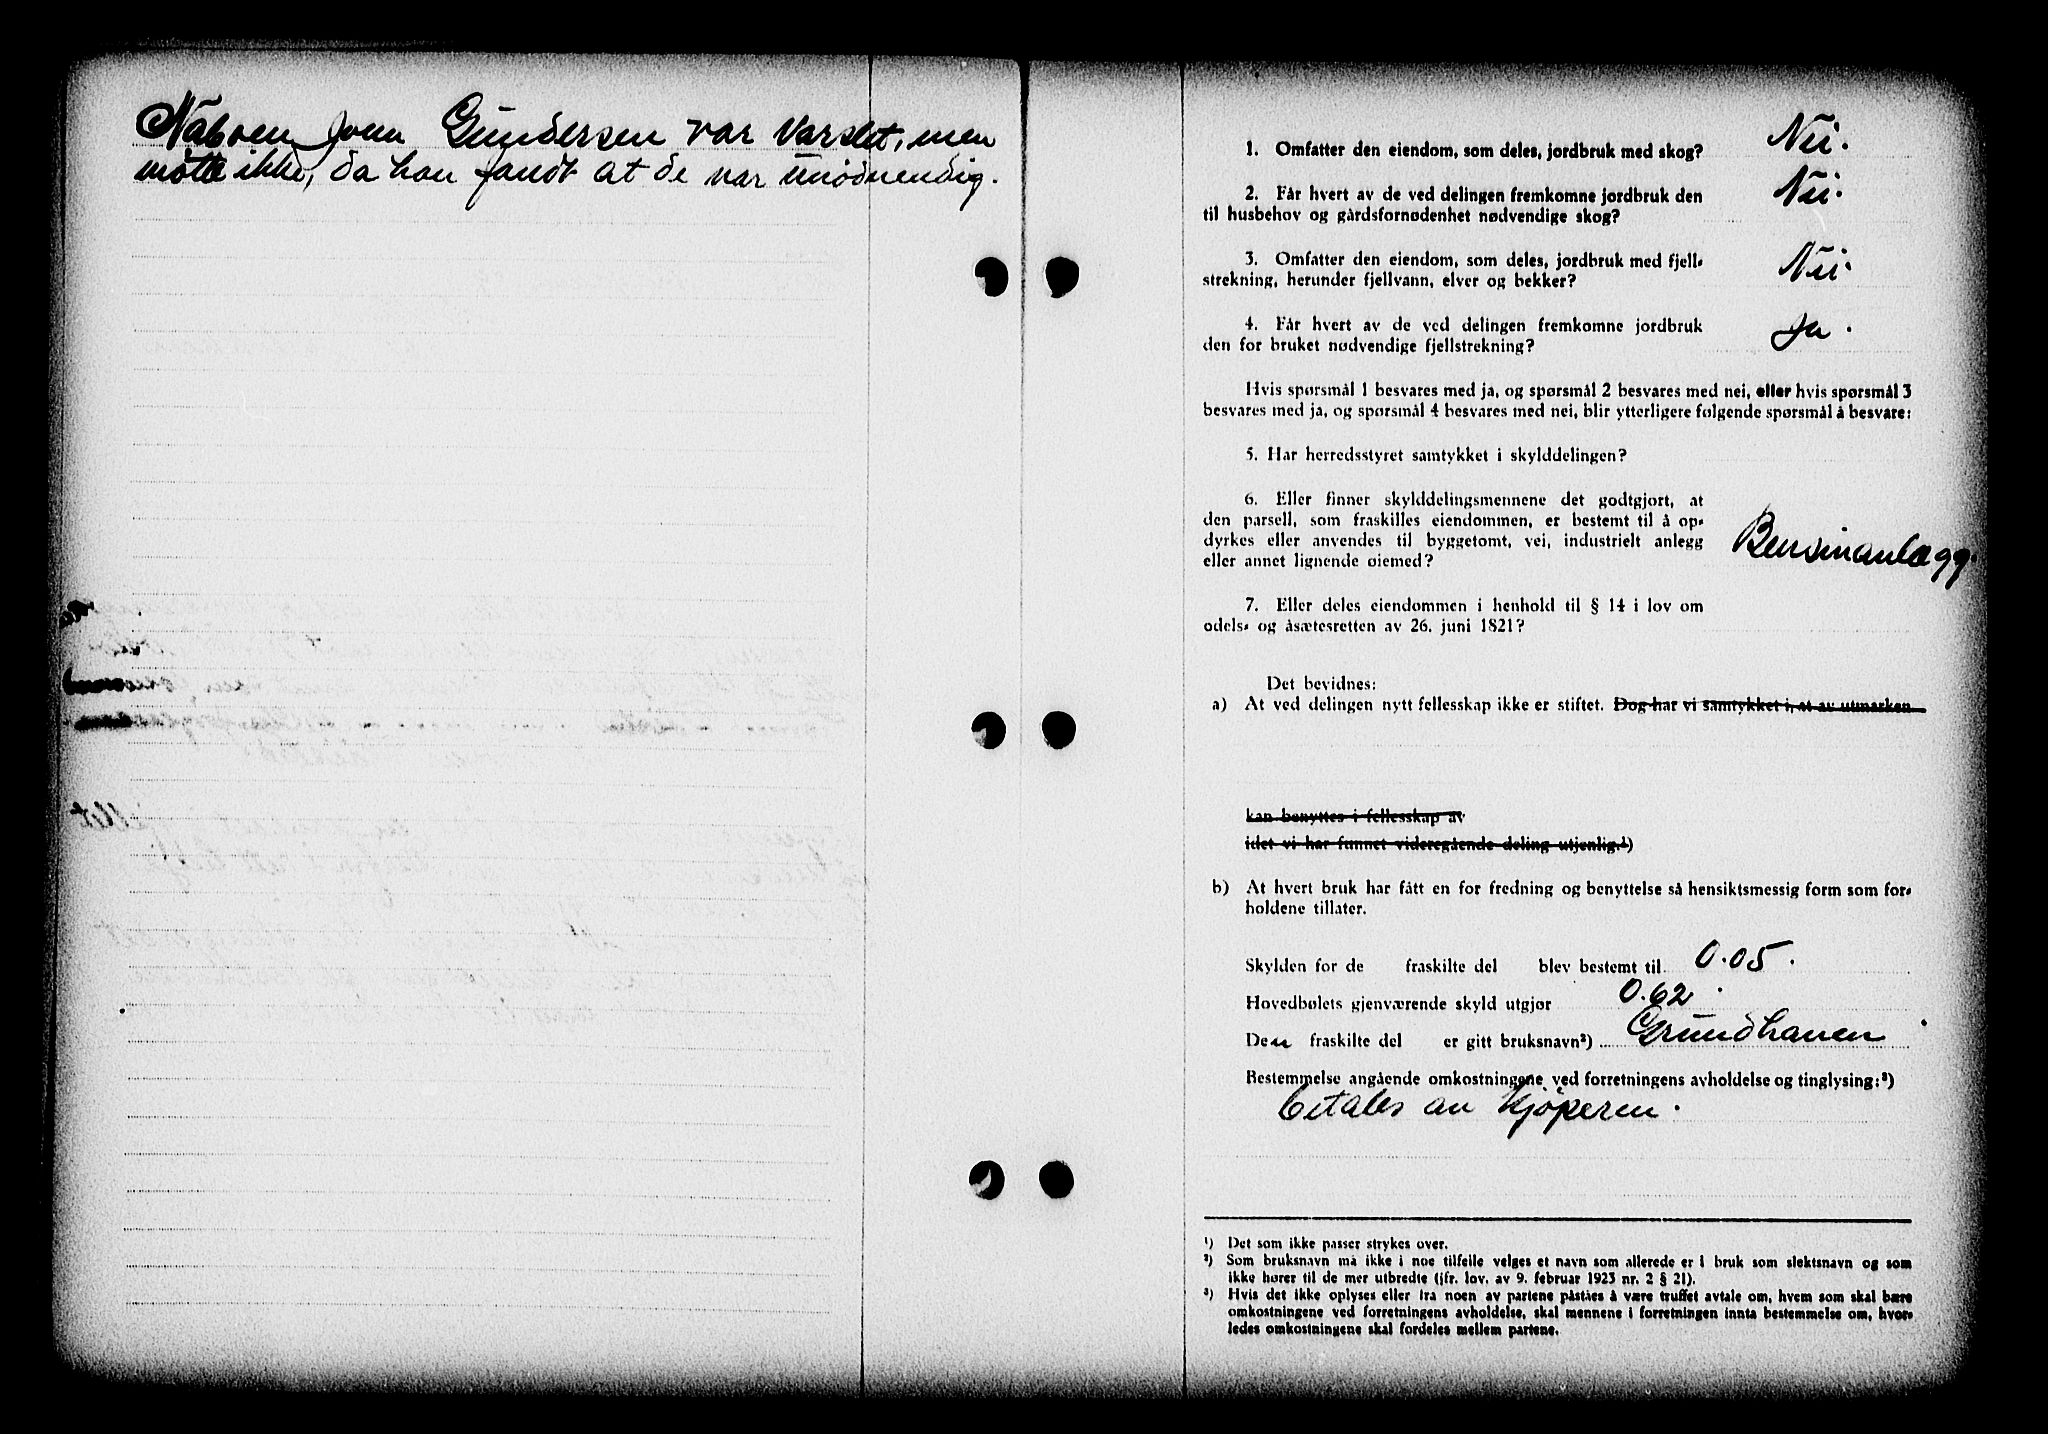 Naboen Gundersen var varslet, men
møtte ikke, da han fandt at de var unødvendig.
1. Omfatter den eiendom, som deles, jordbruk med skog? Nei.
2. Får hvert av de ved delingen fremkomne jordbruk den
til husbehov og gårdsfornødenhet nødvendige skog? Nei.
3. Omfatter den eiendom, som deles, jordbruk med fjell-
strekning, herunder fjellvann, elver og bekker? Nei.
4. Får hvert av de ved delingen fremkomne jordbruk
den for bruket nødvendige fjellstrekning? Ja.
Hvis spørsmål 1 besvares med ja, og spørsmål 2 besvares med nei, eller hvis spørsmål 3
besvares med ja, og spørsmål 4 besvares med nei, blir ytterligere følgende spørsmål å besvare:
5. Har herredsstyret samtykket i skylddelingen?
6. Eller finner skylddelingsmennene det godtgjort, at
den parsell, som fraskilles eiendommen, er bestemt til å op-
dyrkes eller anvendes til byggetomt, vei, industrielt anlegg
eller annet lignende øiemed? Bensinanlegg.
7. Eller deles eiendommen i henhold til § 14 i lov om
odels- og åsætesretten av 26. juni 1821?
Det bevidnes:
a) At ved delingen nytt fellesskap ikke er stiftet. Dog har vi samtykket i, at av utmarken
kan benyttes i fellesskap av
idet vi har funnet videregående deling utjenlig.¹)
b) At hvert bruk har fått en for fredning og benyttelse så hensiktsmessig form som for-
holdene tillater.
Skylden for de fraskilte del blev bestemt til 0.05.
Hovedbølets gjenværende skyld utgjør 0.62.
Den fraskilte del er gitt bruksnavn²) Grundhaven.
Bestemmelse angående omkostningene ved forretningens avholdelse og tinglysing:³)
betales av kjøperen.
¹) Det som ikke passer strykes over.
²) Som bruksnavn må ikke i noe tilfelle velges et navn som allerede er i bruk som slektsnavn og som
ikke hører til de mer utbredte (jfr. lov. av 9. februar 1923 nr. 2 § 21).
³) Hvis det ikke oplyses eller fra noen av partene påstås å være truffet avtale om, hvem som skal bære
omkostningene ved forretningens avholdelse, skal mennene i forretningen innta bestemmelse om, hvor-
ledes omkostningene skal fordeles mellem partene.